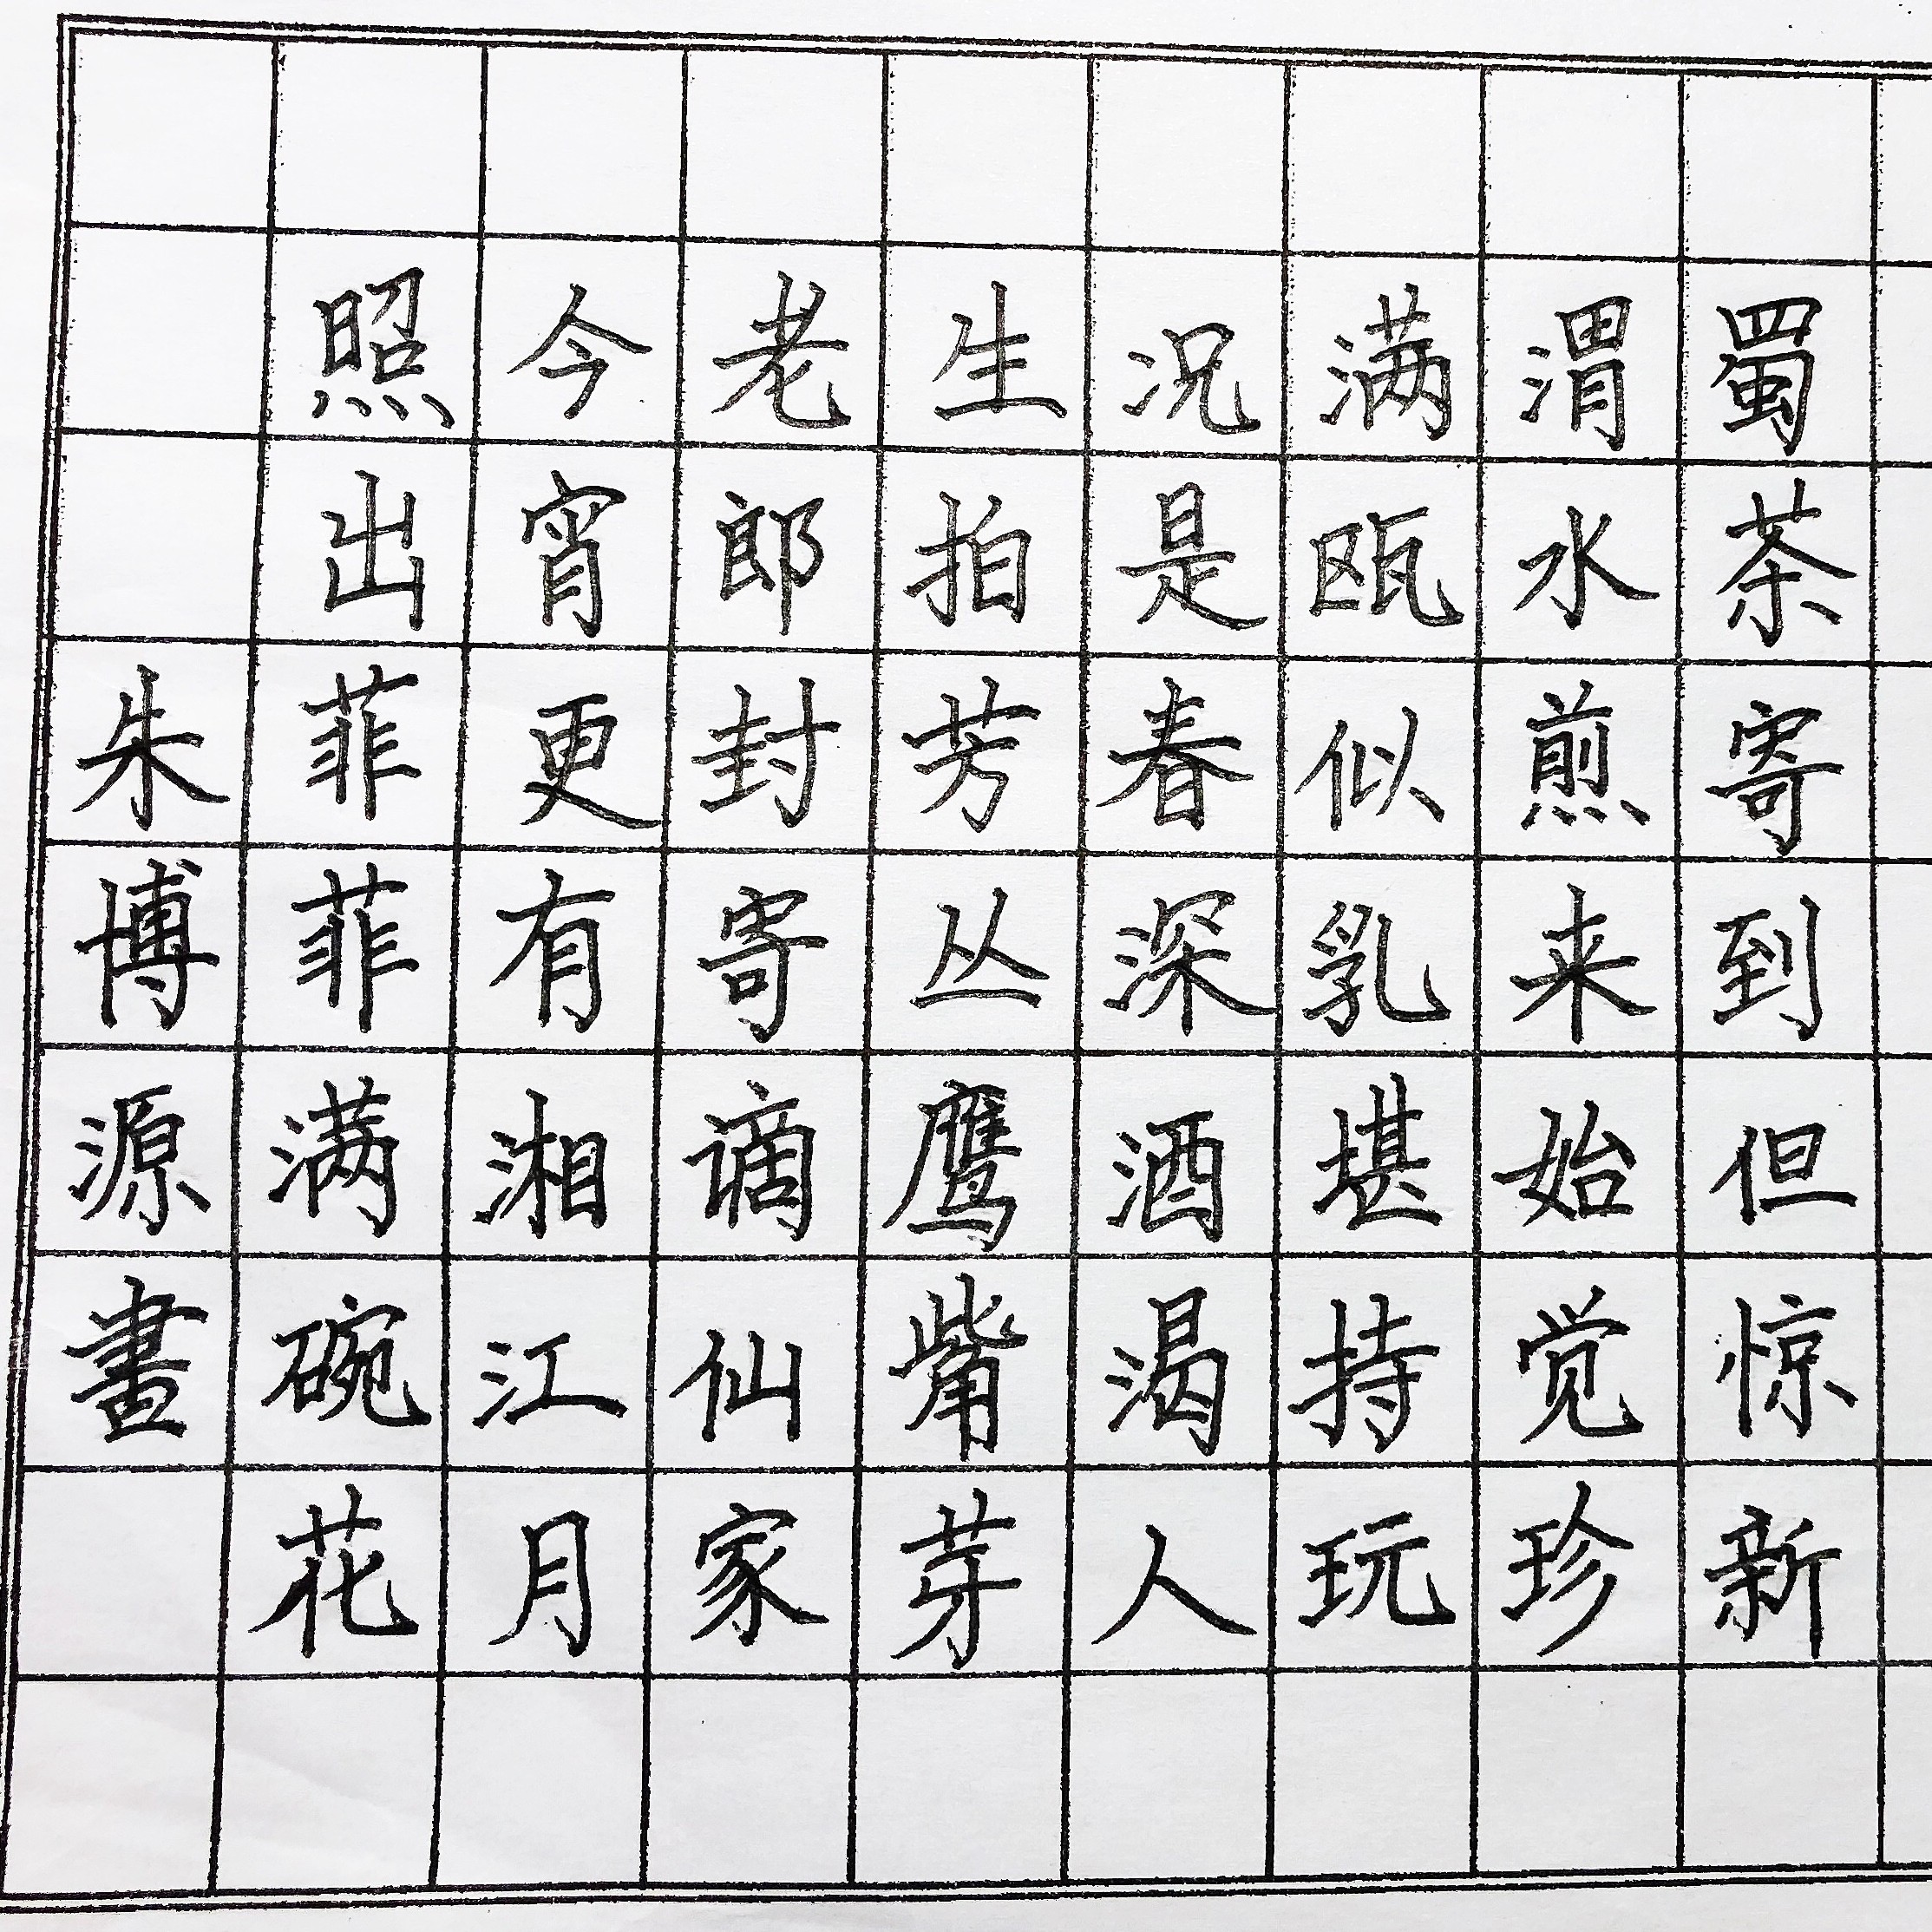 蜀茶寄到但惊新
渭水煎来始觉珍
满瓯似乳堪持玩
况是春深酒渴人
生拍芳丛鹰嘴芽
老郎封寄谪仙家
今宵更有湘江月
照出菲菲满碗花
朱博源書